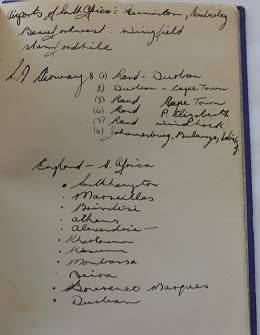 Airports of South Africa: Germiston, Kimberley
Beaufortwest. Wingfield
Stamfordhille
S.A. Airways (1) Rand - Durban
2) Durban - Cape Town
(3) Rand Cape Town
(4) Rand P. Elizabeth
(5) Rand Windhoek
(6) Johannesburg, Bulawayo,
England - S. Africa
• Southampton
• Marseilles
• Brindisi
• Athens
• Alexandria
• Khartoum
• Kisumu
• Mombassa
• Beira
• Lourenco Marques
• Durban